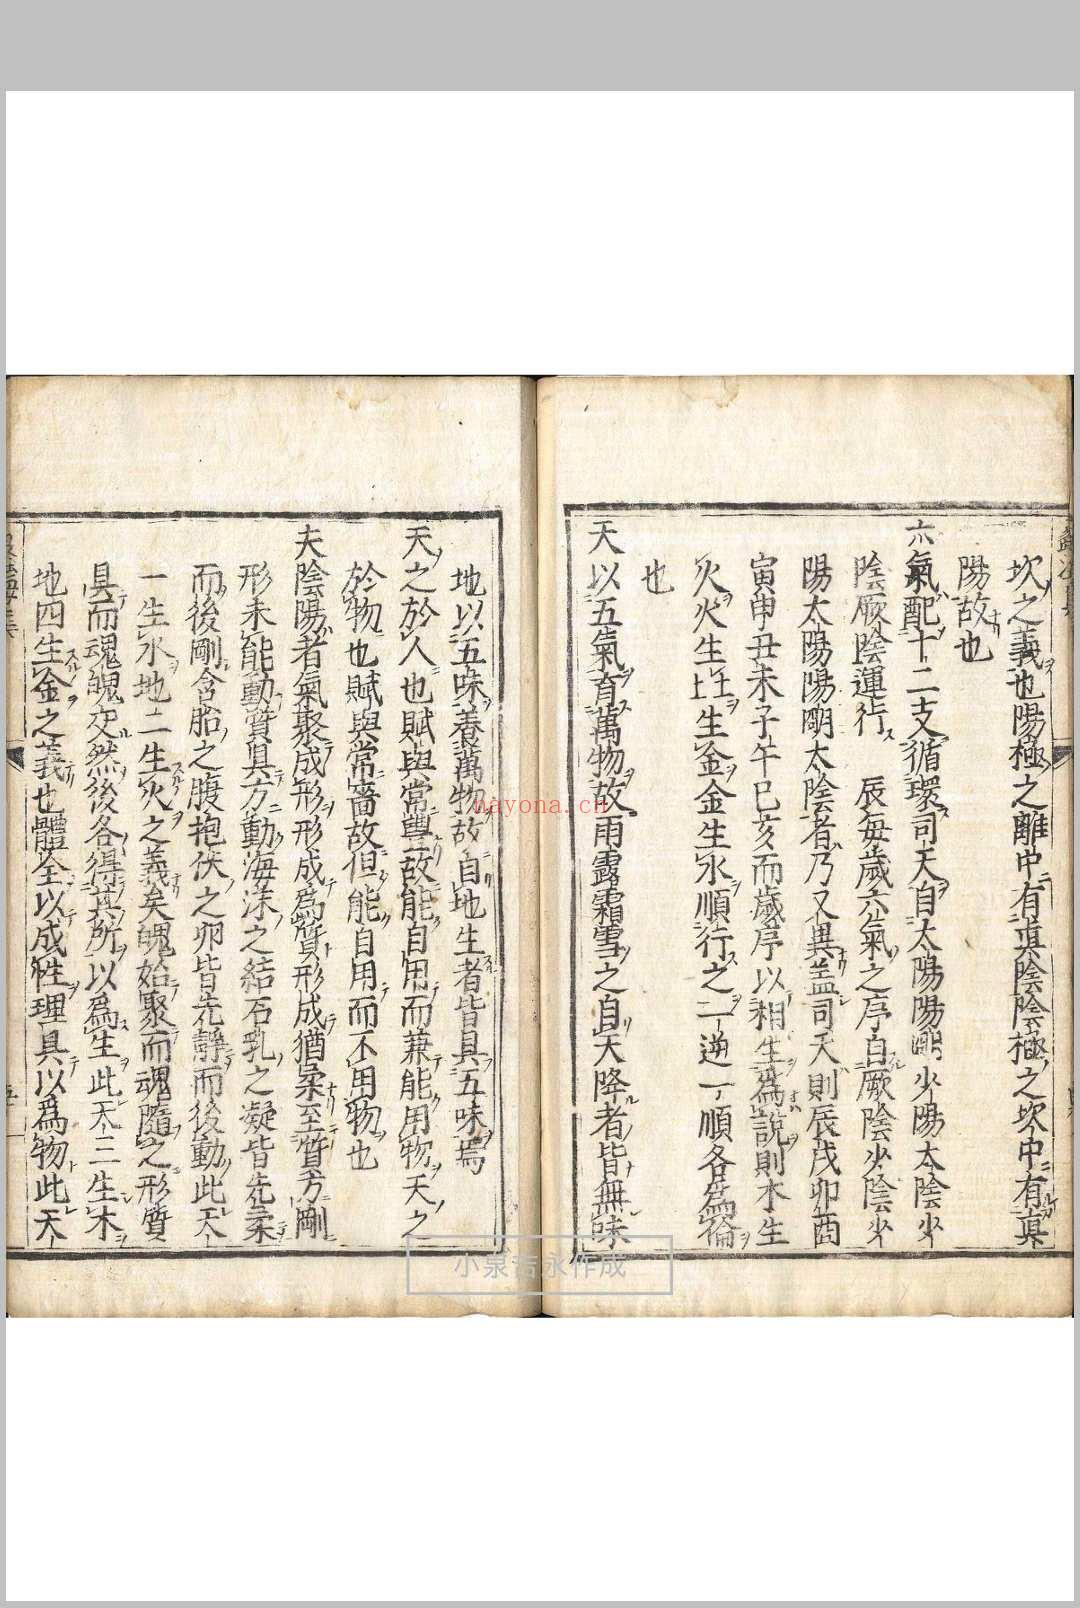 坎之義也陽極之離中有眞陰陰極之坎中有眞
陽故也
六氣配十二支循環司天自太陽陽明少陽太陰少
陰厥陰運行 辰每歲六氣之序自厥陰少陰少
陽太陽陽明太陰者乃又異盖司天則辰戌卯酉
寅申丑未子午巳亥而歲序以相生爲說則木生
火火生土土生金金生水順行之二逆一順各爲倫
也
天以五氣育萬物故雨露霜雪之自天降者皆無味
地以五味養萬物故自地生者皆具五味焉
天之於人也賦與常豊故能自用而兼能用物天之
於物也賦與常嗇故但能自用而不用物也
夫陰陽者氣聚成形形成爲質形成猶柔至質方剛
形未能動質具方動海沫之結石乳之凝皆先柔
而後剛含胎之腹抱伏之卵皆先靜而後動此天
一生水地二生火之義矣魄始聚而魂隨之形質
具而魂魄交然後各得其所以爲生此天三生木
地四生金之義也體全以成性理具以爲物此天
nayona.cn
小泉吉永作成